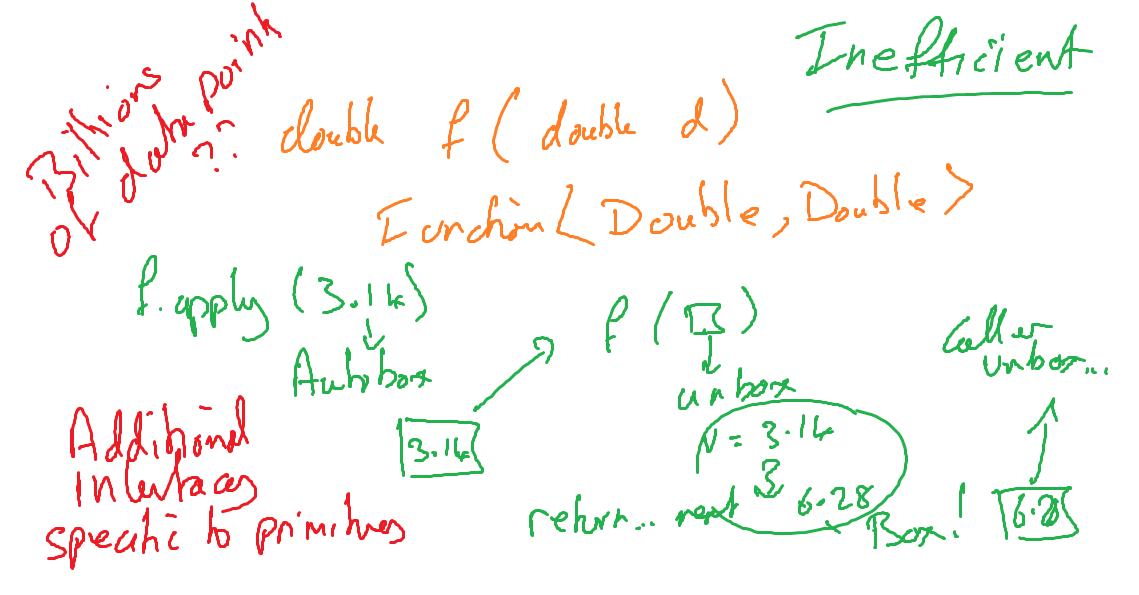 Inefficient
Billions
of data point
??
double f ( double d )
Function < Double, Double >
f. apply ( 3.14 )
Autobox
3.14
f ( )
unbox
N = 3.14
6.28
return...
Box!
6.28
Caller
unbox...
Additional
Interfaces
specific to primitives